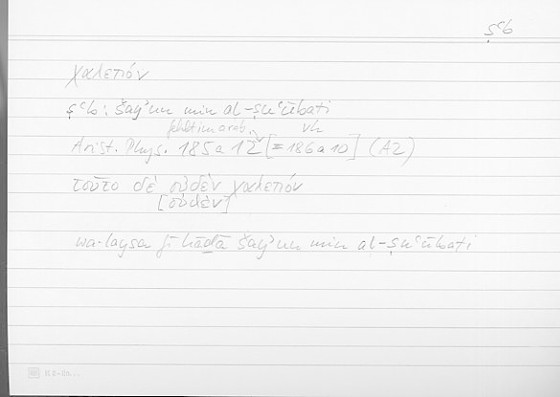 ṣʿb
χαλεπόν
ṣʿb: šayʾun min al-ṣuʿūbati
fehlt im arab. vh
Arist. Phys. 185a12 [= 186a10] (A2)
τοῦτο δὲ οὐδὲν χαλεπόν
[οὐθὲν]
wa-laysa fī hāḏā šayʾun min al-ṣuʿūbati